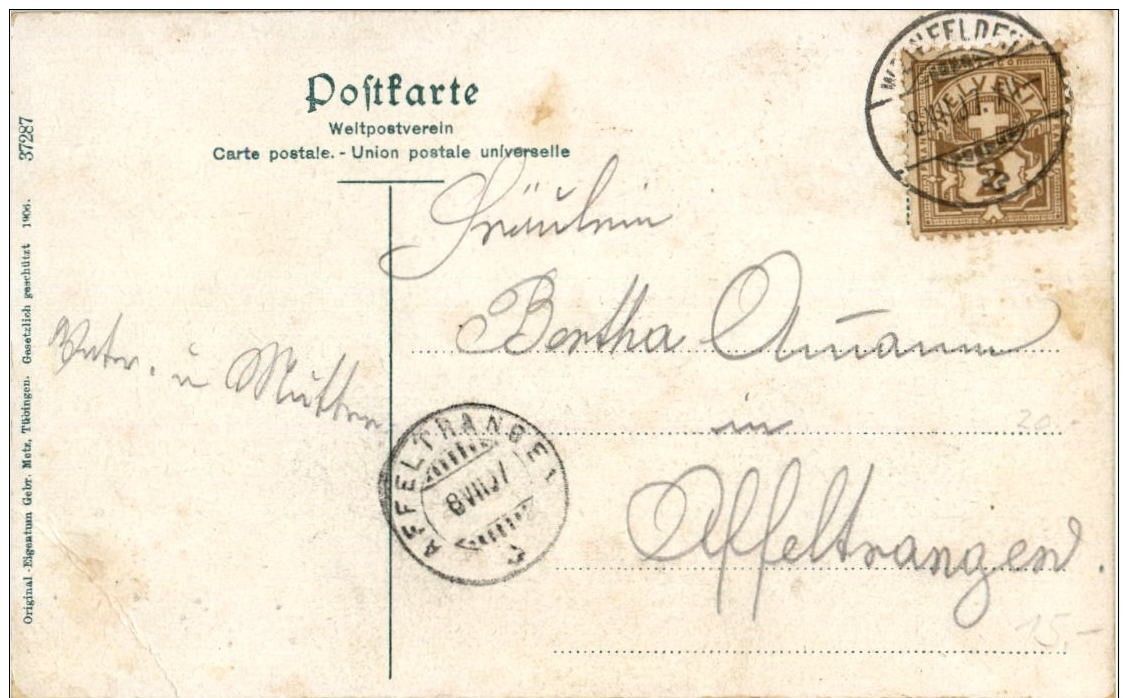 Postkarte
Weltpostverein
Carte postale. - Union postale universelle
37287
Original-Eigentum Gebr. Metz, Tübingen. Gesetzlich geschützt 1906.
HELVETIA
Fräulein
Bertha Amann
in
Affeltrangen.
Vater. u Mutter
AFFELTRANGEN
8 VII 07
20
15.-